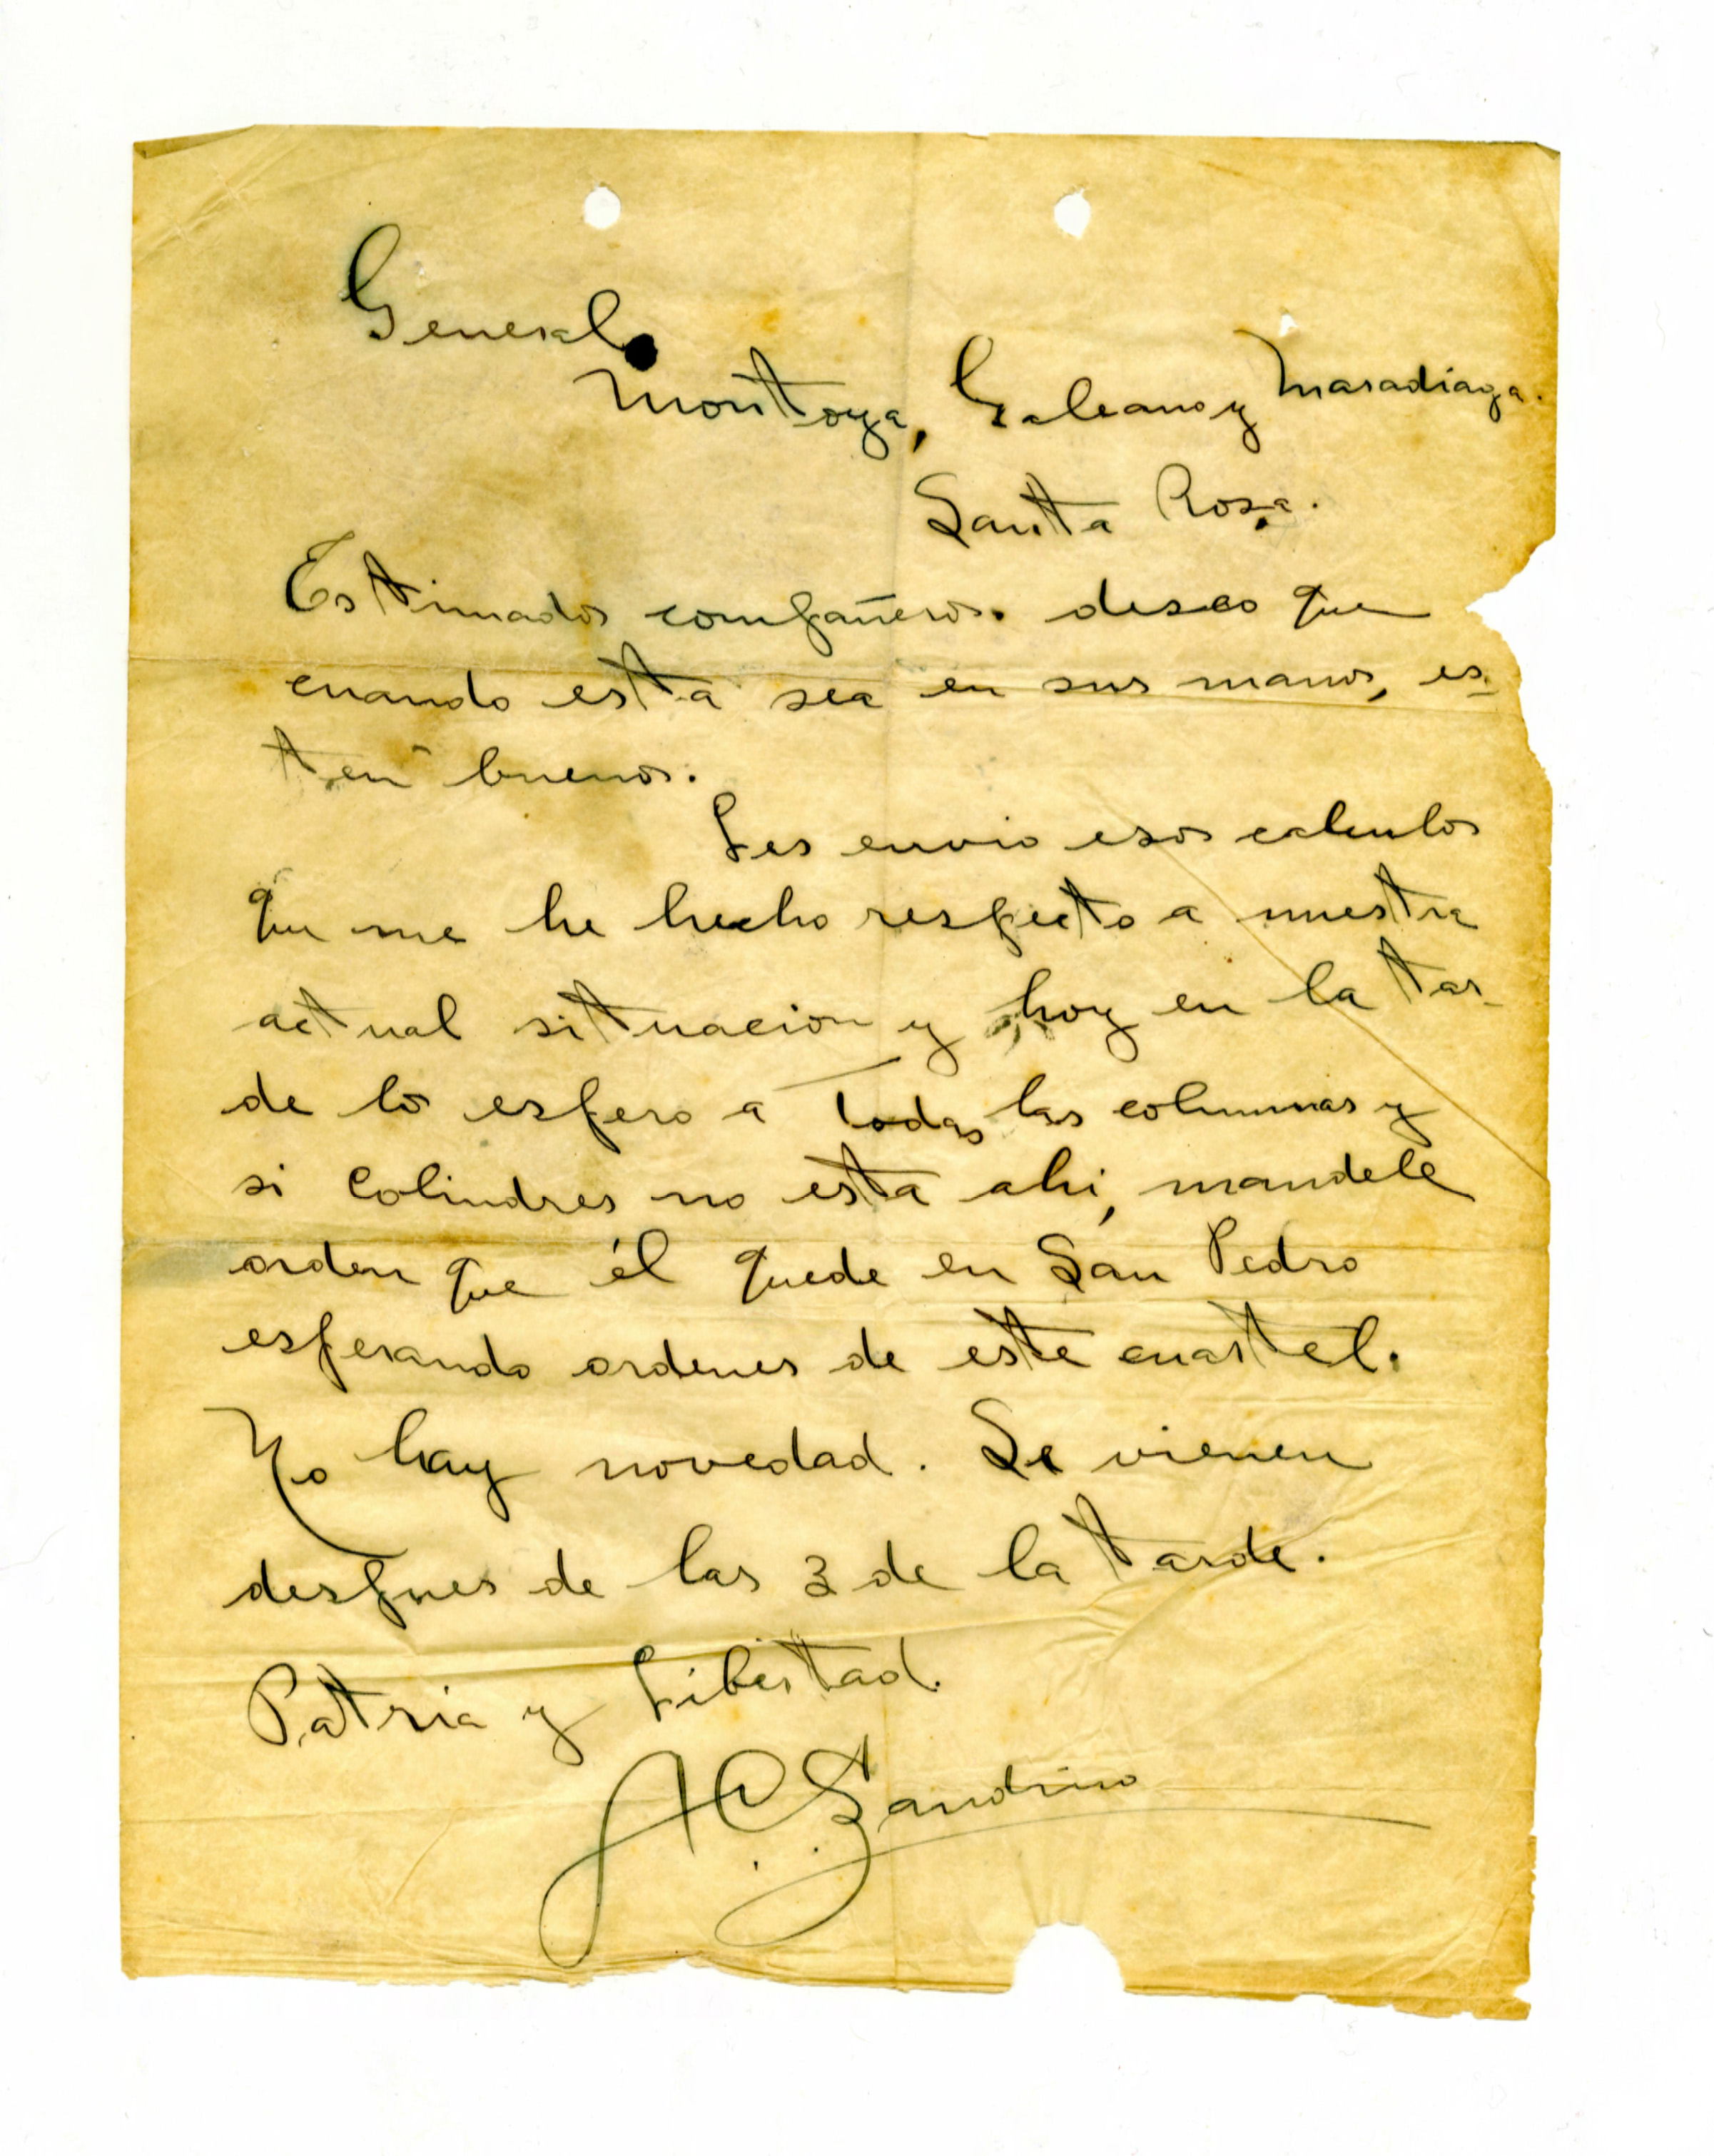 General
Montoya, Galeano y Maradiaga.
Santa Rosa.
Estimados compañeros. deseo que
cuando esta sea en sus manos, es-
ten buenos.
Les envio esos calculos
que me he hecho respecto a nuestra
actual situacion y hoy en la tar-
de lo espero a todas las columnas y
si Colindres no esta ahi, mandele
orden que él quede en San Pedro
esperando ordenes de este cuartel.
No hay novedad. Se vienen
despues de las 3 de la tarde.
Patria y Libertad.
A C Sandino